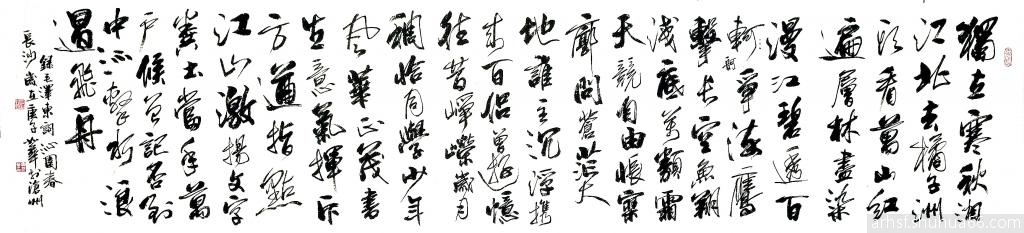 獨立寒秋湘
江北去橘子洲
頭看萬山紅
遍層林盡染
漫江碧透百
軻舸爭流鷹
擊長空魚翔
淺底萬類霜
天競自由悵寥
廓問蒼茫大
地誰主沉浮攜
來百侶曾遊憶
往昔崢嶸歲月
稠恰同學少年
風華正茂書
生意氣揮斥
方遒指點
江山激揚文字
糞土當年萬
戶侯曾記否到
中流擊水浪
遏飛舟
錄毛澤東詞沁園春
長沙歲在庚子
arhsf.shuhua66.com